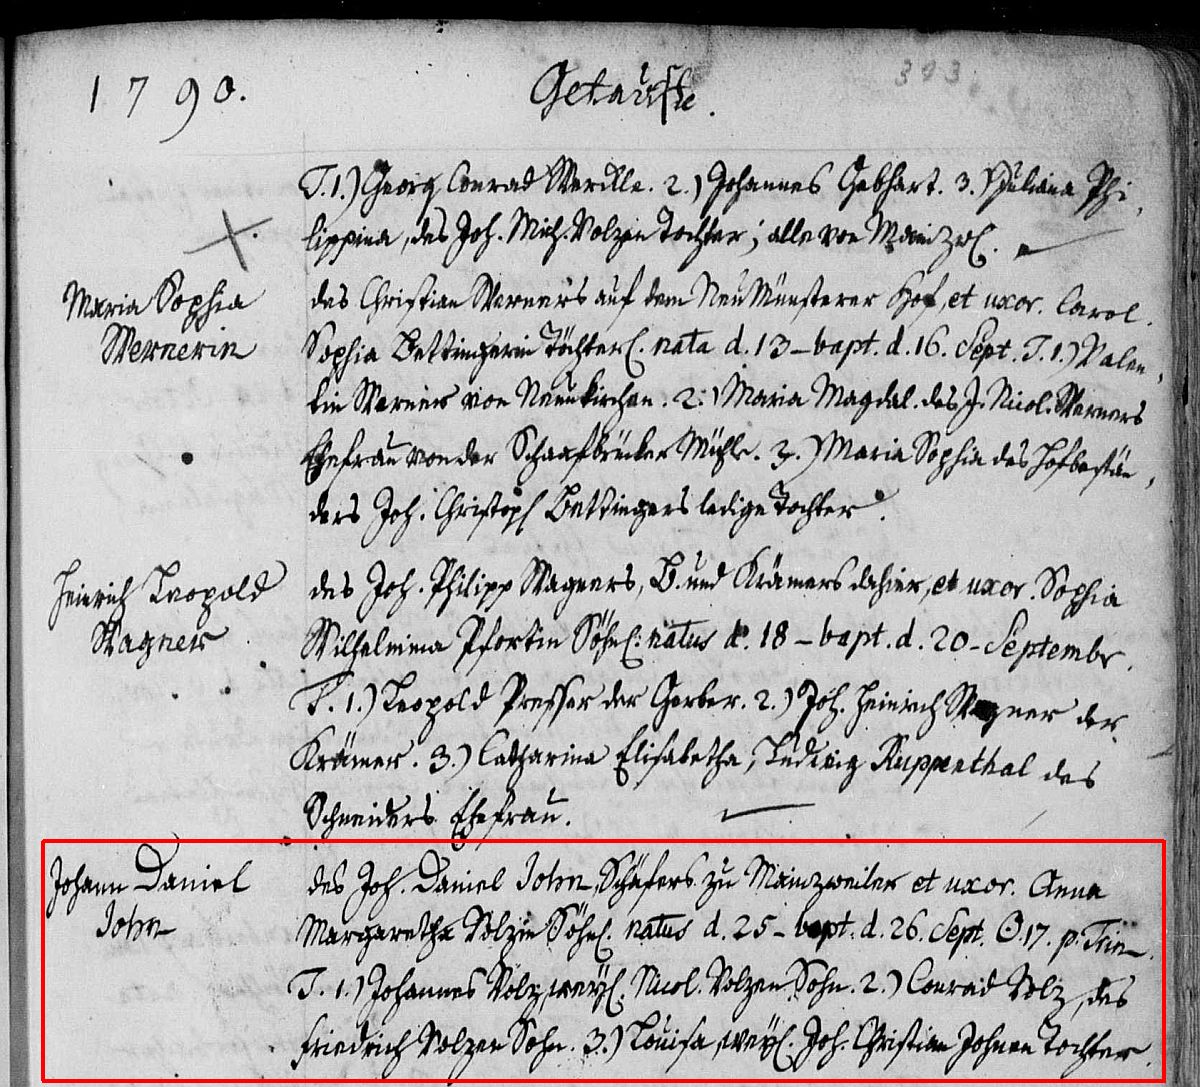 1790.
Getaufte.
393.
T. 1.) Georg Conrad Werckle. 2.) Johannes Gebhart. 3. Juliana Phi,
lippina, des Joh. Mich. Volzen Tochter; alle von Mainzwl.
Maria Sophia
Wernerin
des Christian Werners auf dem Neu Münsterer Hof, et uxor. Carol.
Sophia Bettingerin Töchterl. nata d. 13 – bapt. d. 16. Sept. T. 1.) Valen,
tin Werner von Neunkirchen. 2.) Maria Magdal. des J. Nicol. Werners
Ehefrau von der Schaafbrücker Mühle. 3.) Maria Sophia des Hofbestän,
ders Joh. Christoph Bettingers ledige Tochter.
Heinrich Leopold
Wagner
des Joh. Philipp Wagners, B. und Krämers dahier, et uxor. Sophia
Wilhelmina Pfortin Söhnl. natus d. 18 – bapt. d. 20. Septembr.
T. 1.) Leopold Presser der Gerber. 2.) Joh. Heinrich Wagner der
Krämer. 3.) Catharina Elisabetha, Ludwig Ruppenthal des
Schneiders Ehefrau.
Johann Daniel
John
des Joh. Daniel John, Schäfers zu Mainzweiler et uxor. Anna
Margaretha Volzin Söhnl. natus d. 25 – bapt. d. 26. Sept. 17. p. Trin.
T. 1.) Johannes Volz, weyl. Nicol. Volzen Sohn. 2.) Conrad Volz, des
Friedrich Volzen Sohn. 3.) Louisa, weyl. Joh. Christian Johnen Tochter.